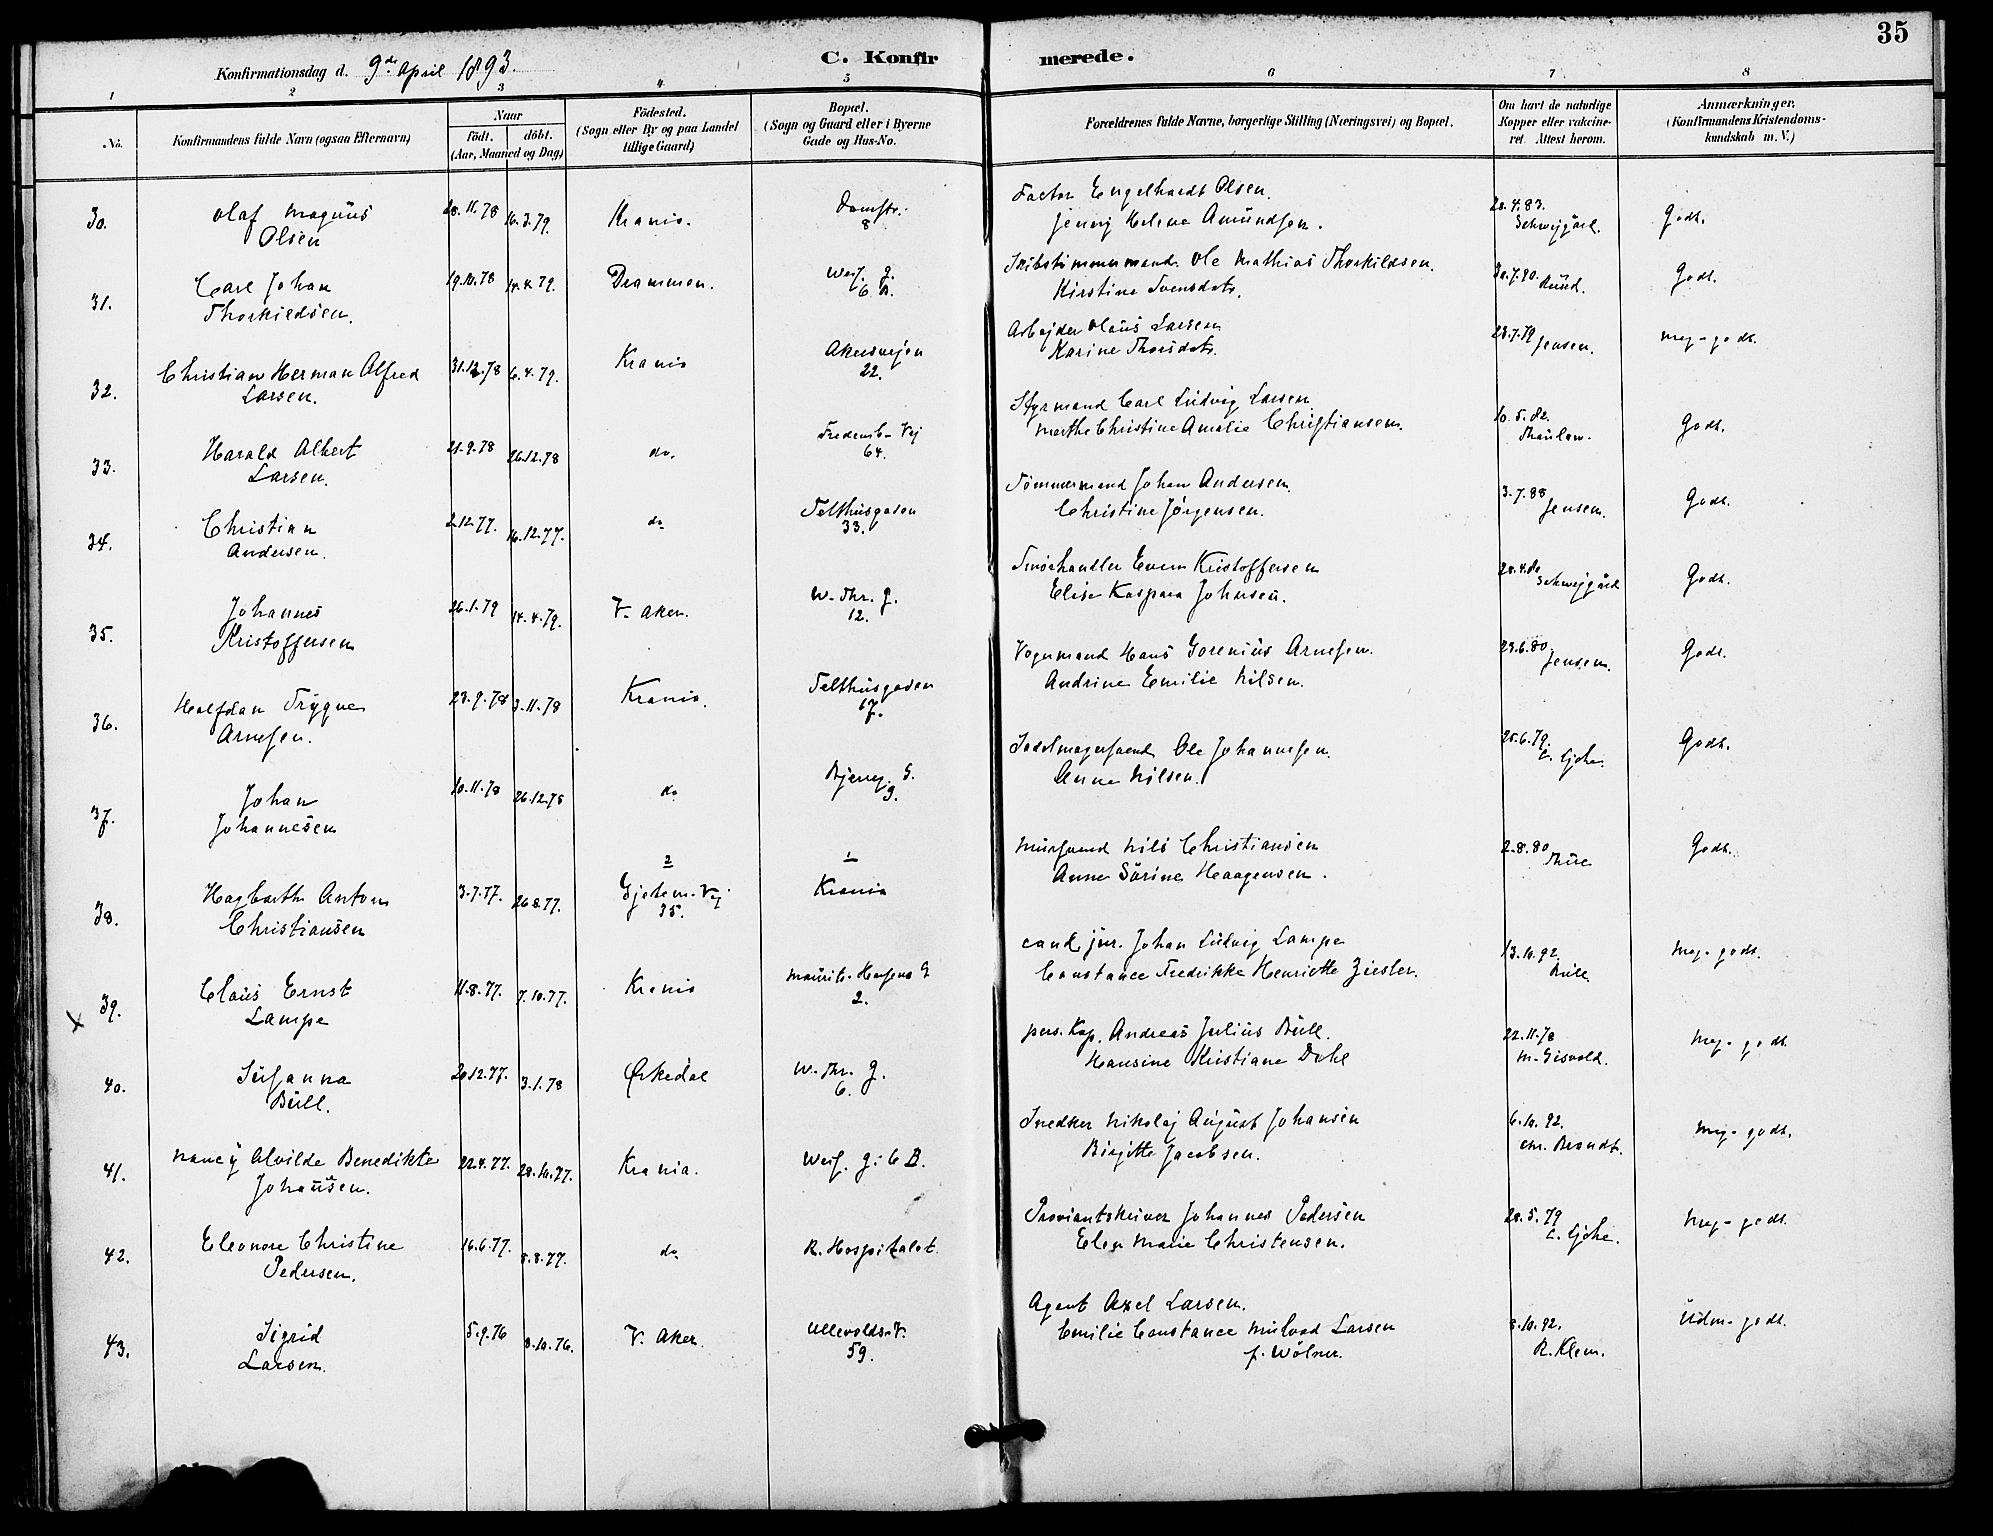 35
Konfirmationsdag d. 9de April 1893.
C. Konfirmerede.
1 2 3 4 5 6 7 8
No.
Konfirmandens fulde Navn (ogsaa Efternavn)
Naar
födt. döbt.
(Aar, Maaned og Dag)
Födested.
(Sogn eller By og paa Landet
tillige Gaard)
Bopæl.
(Sogn og Gaard eller i Byerne
Gade og Hus-No.
Forældrenes fulde Navne, borgerlige Stilling (Næringsvei) og Bopæl.
Om havt de naturlige
Kopper eller vakcine-
ret. Attest herom.
Anmærkninger.
(Konfirmandens Kristendoms-
kundskab m. V.)
30. Olaf Magnus Olsen 28.11.78 16.3.79. Krania. Damstr. 8
Factor Engelhardt Olsen.
Jenny Helene Amundsen.
20.4.83. Schweigård. Godt.
31. Carl Johan Thorkildsen. 19.10.78 14.4.79. Drammen. Wesf. g. 6 B.
Skibstømmermand Ole Mathias Thorkildsen.
Kirstine Svensdatr.
30.7.80. Ruud. Godt.
32. Christian Herman Alfred Larsen. 31.12.78 6.4.79. Krania Akersvejen 22.
Arbejder Olaus Larsen
Karine Thorsdatr.
28.7.79 Jensen. Meg-godt.
33. Harald Albert Larsen. 21.9.78 26.12.78 do. Fredensb-Vej 64.
Styrmand Carl Ludvig Larsen
Marthe Christine Amalie Christiansen.
10.5.82. Thaulow. Godt.
34. Christian Andersen. 2.12.77. 16.12.77. do Telthusgaden 33.
Tömmermand Johan Andersen.
Christine Jørgensen.
3.7.88 Jensen. Godt.
35. Johannes Kristoffersen 26.1.79 14.4.79. V. Aker. W. Thr. g. 12.
Smørhandler Even Kristoffersen
Elise Kaspara Johnsen.
20.4.80 Schweigård Godt.
36. Halfdan Trygve Arnesen. 23.9.78 3.11.78 Krania. Telthusgaden 17.
Vognmand Hans Gorenius Arnesen.
Andrine Emilie Nilsen.
23.6.80. Jensen. Godt.
37. Johan Johannesen 10.11.78 26.12.78 do Bjerreg. G. 9.
Sadelmagersvend Ole Johannesen.
Anna Nilsen.
25.6.79. Godt.
38. Hagbarth Anton Christiansen 3.7.77. 26.8.77. 2 Gjetem. Vej 35. 1 Krania
Mursvend Nils Christiansen
Anne Sörine Haagensen.
2.8.80 Thue Godt.
39. Claus Ernst Lampe 11.8.77. 7.10.77. Krania Maurits Hansens G 2.
cand. jur. Johan Ludvig Lampe
Constance Fredrikke Henriette Ziesler.
13.10.92. Meg-godt.
40. Susanna Bull. 20.12.77. 3.1.78 Ørkedal W. Thr. g. 6.
pers. Kap. Andreas Julius Bull.
Hansine Kristiane Dahl
22.11.78 M. Gisvold. Meg-godt.
41. Nancy Alvilde Benedikte Johansen. 22.4.77. 28.10.77. Krania. Wesf. g. 6 B.
Snedker Nikolaj August Johansen
Birgitte Jacobsen.
6.10.92. Chr. Brandt. Meg-godt.
42. Eleonore Christine Pedersen. 16.6.77. 8.8.77. do R. Hospitalet
Proviantskriver Johannes Pedersen
Elen Marie Christensen.
20.5.79 Meg-godt.
43. Sigrid Larsen. 5.9.76 8.10.76. V. Aker. Ullevolds-V. 59.
Agent Axel Larsen.
Emilie Constance Mulvad Larsen
f. Wölner.
8.10.92. R. Klem. Udm-godt.